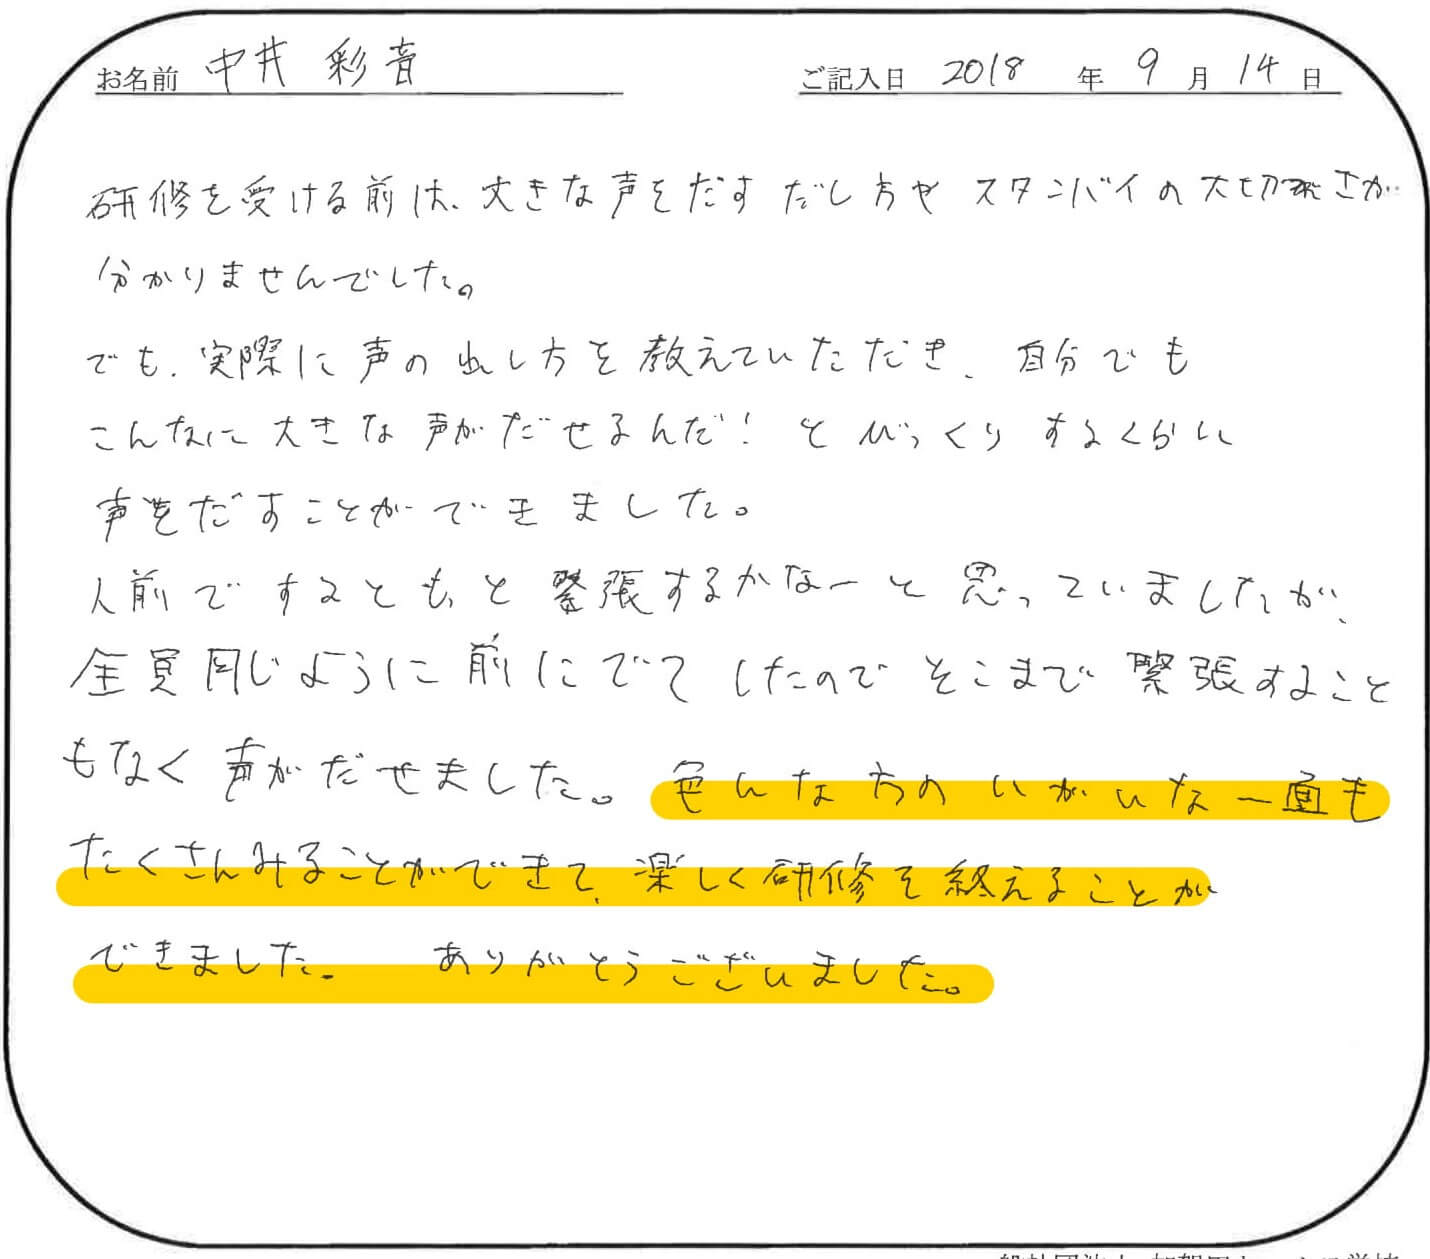 お名前 中井 彩音 ご記入日 2018 年 9 月 14 日
研修を受ける前は、大きな声をだすだし方やスタンバイの大切さが
分かりませんでした。
でも、実際に声の出し方を教えていただき、自分でも
こんなに大きな声がだせるんだ!とびっくりするくらい
声をだすことができました。
人前でするともっと緊張するかなーと思っていましたが、
全員同じように前にでてしたのでそこまで緊張すること
もなく声がだせました。色んな方のいがいな一面も
たくさんみることができて、楽しく研修を終えることが
できました。 ありがとうございました。